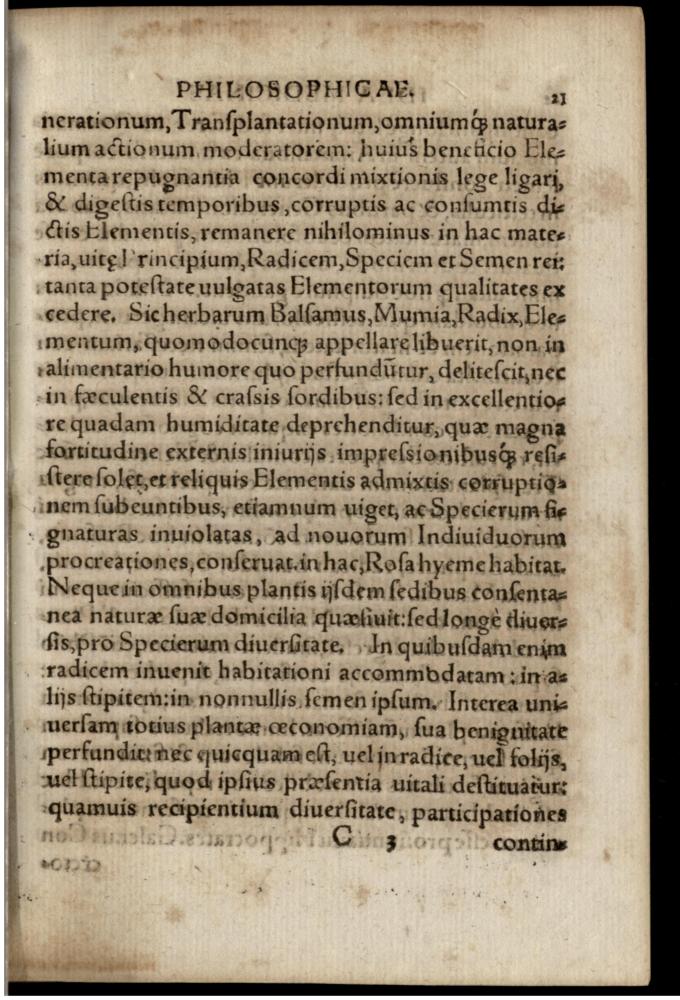 PHILOSOPHICAE. 21
nerationum, Transplantationum, omniumq́ꝫ natura-
lium actionum moderatorem: huius beneficio Ele-
menta repugnantia concordi mixtionis lege ligari,
& digestis temporibus, corruptis ac consumtis di-
ctis Elementis, remanere nihilominus in hac mate-
ria, uitę Principium, Radicem, Speciem et Semen rei:
tanta potestate uulgatas Elementorum qualitates ex
cedere. Sic herbarum Balsamus, Mumia, Radix, Ele-
mentum, quomodocunqꝫ appellare libuerit, non in
alimentario humore quo perfundũtur, delitescit, nec
in fæculentis & crassis sordibus: sed in excellentio-
re quadam humiditate deprehenditur, quæ magna
fortitudine externis iniurijs impressionibusq́ꝫ resi-
stere solet, et reliquis Elementis admixtis corruptio-
nem subeuntibus, etiamnum uiget, ac Specierum si-
gnaturas inuiolatas, ad nouorum Indiuiduorum
procreationes, conseruat. in hac, Rosa hyeme habitat.
Neque in omnibus plantis ijsdem sedibus consenta-
nea naturæ suæ domicilia quæsiuit: sed longè diuer-
sis, pro Specierum diuersitate. In quibusdam enim
radicem inuenit habitationi accommodatam: in a-
lijs stipitem: in nonnullis semen ipsum. Interea uni-
uersam totius plantæ œconomiam, sua benignitate
perfundit: nec quicquam est, uel in radice, uel folijs,
uel stipite, quod ipsius præsentia uitali destituatur:
quamuis recipientium diuersitate, participationes
C 3 contin-